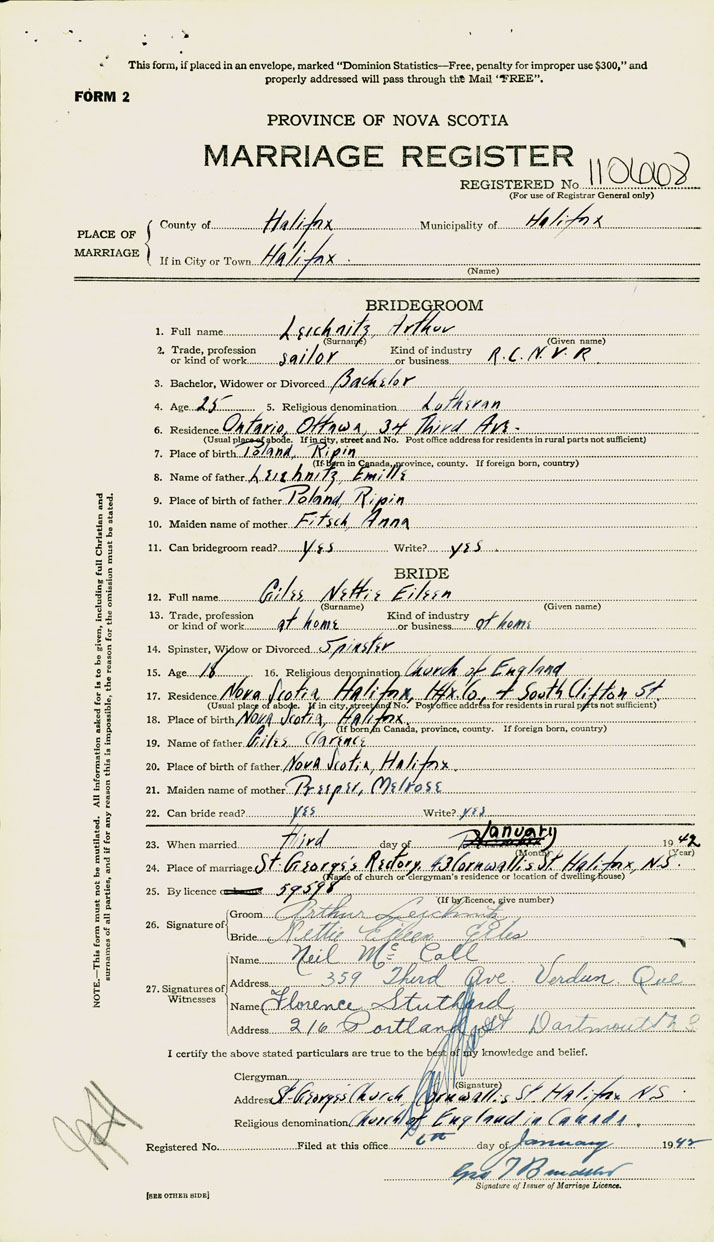 This form, if placed in an envelope, marked "Dominion Statistics—Free, penalty for improper use $300," and
properly addressed will pass through the Mail "FREE".
FORM 2
PROVINCE OF NOVA SCOTIA
MARRIAGE REGISTER
REGISTERED No. 110668
(For use of Registrar General only)
PLACE OF MARRIAGE
County of Halifax Municipality of Halifax
If in City or Town Halifax.
(Name)
BRIDEGROOM
1. Full name Leichnitz, Arthur
(Surname) (Given name)
2. Trade, profession or kind of work sailor Kind of industry or business R.C.N.V.R.
3. Bachelor, Widower or Divorced Bachelor
4. Age 25 5. Religious denomination Lutheran
6. Residence Ontario, Ottawa, 34 Third Ave.
(Usual place of abode. If in city, street and No. Post office address for residents in rural parts not sufficient)
7. Place of birth Poland, Ripin
(If born in Canada, province, county. If foreign born, country)
8. Name of father Leichnitz, Emille
9. Place of birth of father Poland, Ripin
10. Maiden name of mother Fitsch, Anna
11. Can bridegroom read? yes Write? yes.
BRIDE
12. Full name Giles Nettie Eileen
(Surname) (Given name)
13. Trade, profession or kind of work at home Kind of industry or business at home
14. Spinster, Widow or Divorced Spinster
15. Age 18 16. Religious denomination Church of England
17. Residence Nova Scotia Halifax, Hfx. Co., 4 South Clifton St
(Usual place of abode. If in city, street and No. Post office address for residents in rural parts not sufficient)
18. Place of birth Nova Scotia, Halifax.
(If born in Canada, province, county. If foreign born, country)
19. Name of father Giles Clarence
20. Place of birth of father Nova Scotia, Halifax.
21. Maiden name of mother Preeper, Melrose
22. Can bride read? yes Write? yes
23. When married third day of January 1942
(Month) (Year)
24. Place of marriage St. George's Rectory, 43 Cornwallis St Halifax, N.S.
(Name of church or clergyman's residence or location of dwelling house)
25. By licence 59598
(If by licence, give number)
26. Signature of
Groom Arthur Leichnitz
Bride Nettie Eileen Giles
27. Signatures of Witnesses
Name Neil McCall
Address 359 Third Ave Verdun Que
Name Florence Stuthard
Address 216 Portland St Dartmouth
I certify the above stated particulars are true to the best of my knowledge and belief.
Clergyman
(Signature)
Address St. Georges Church, Cornwallis St. Halifax N.S.
Religious denomination Church of England in Canada.
Registered No. Filed at this office 6th day of January 1942
Signature of Issuer of Marriage Licence.
[SEE OTHER SIDE]
NOTE.—This form must not be mutilated. All information asked for is to be given, including full Christian and
surnames of all parties, and if for any reason this is impossible, the reason for the omission must be stated.